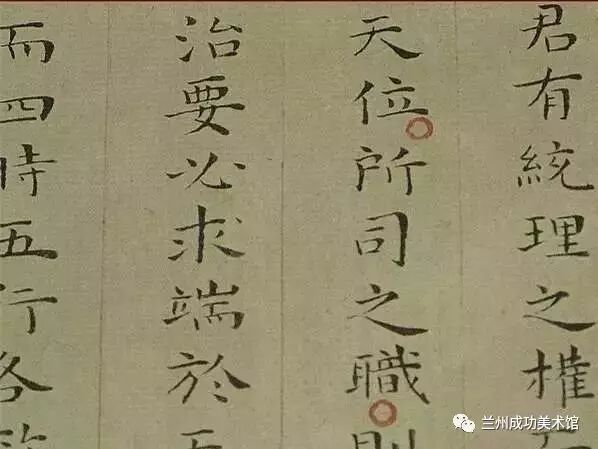 君有統理之權
天位所司之職則
治要必求端於
而四時五行各
兰州成功美术馆